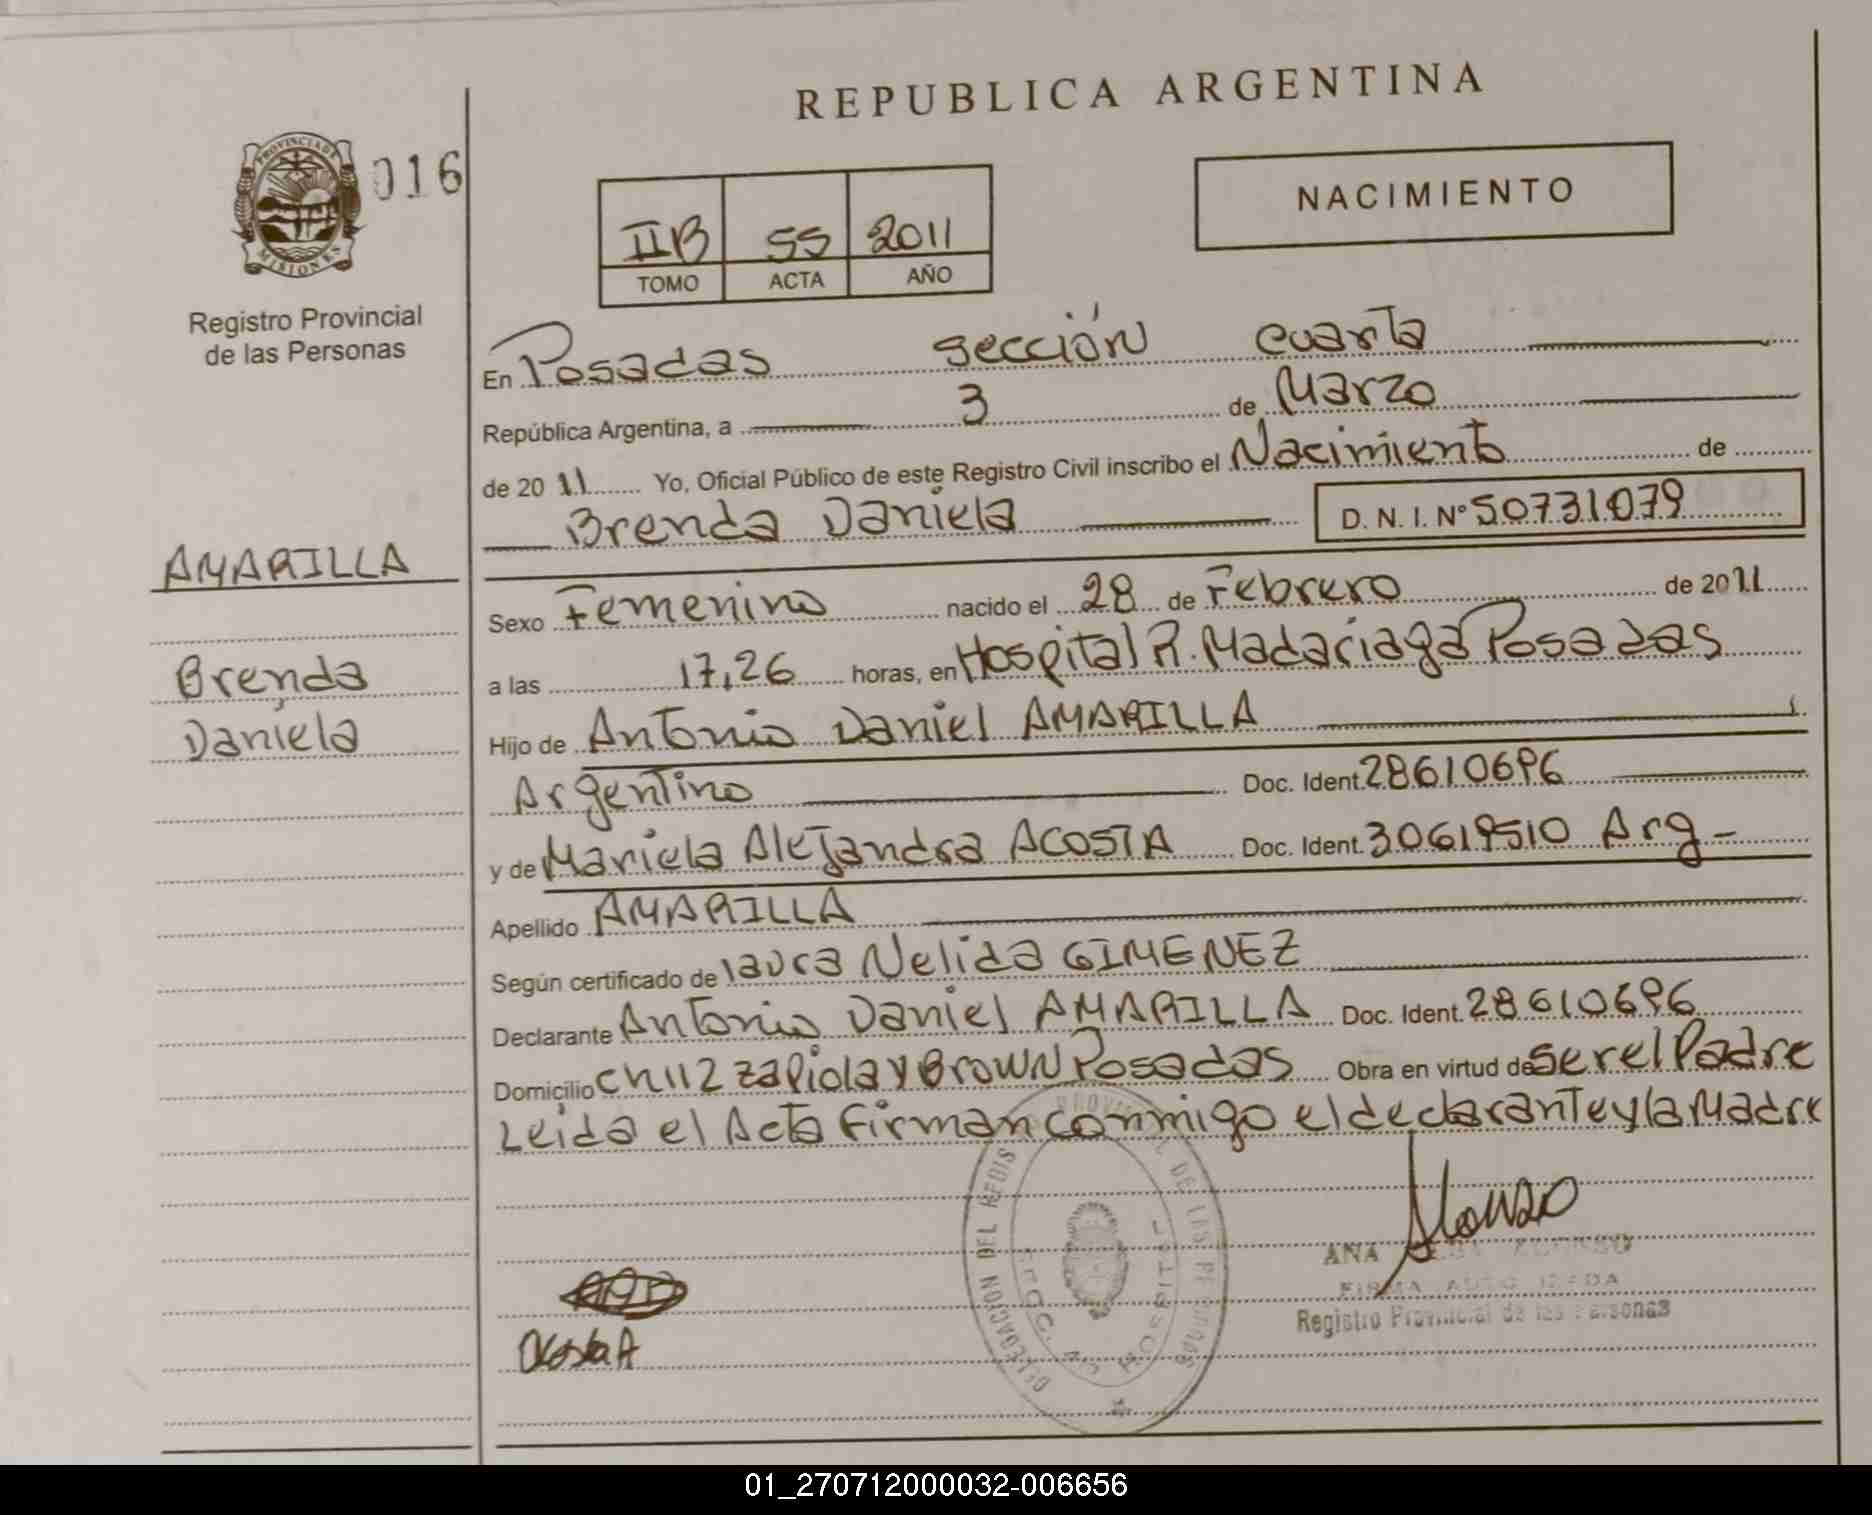 REPUBLICA ARGENTINA
PROVINCIA DE
MISIONES
016
NACIMIENTO
IIB 55 2011
TOMO ACTA AÑO
Registro Provincial
de las Personas
En Posadas sección cuarta
República Argentina, a 3 de Marzo
de 2011 Yo, Oficial Público de este Registro Civil inscribo el Nacimiento de
Brenda Daniela D. N. I. Nº 50731079
AMARILLA
Brenda
Daniela
Sexo Femenino nacido el 28 de Febrero de 2011
a las 17,26 horas, en Hospital R. Madariaga Posadas
Hijo de Antonio Daniel AMARILLA
Argentino Doc. Ident. 28610696
y de Mariela Alejandra ACOSTA Doc. Ident. 30619510 Arg-
Apellido AMARILLA
Según certificado de Laura Nelida GIMENEZ
Declarante Antonio Daniel AMARILLA Doc. Ident. 28610696
Domicilio Ch112 Zapiola y Brown Posadas Obra en virtud de ser el Padre
Leida el Acta Firman conmigo el declarante y la Madre
DELEGACION DEL REGIS PROVI DE LAS PERSONAS
Alonzo
ANA ALONSO
FIRMA AUTORIZADA
Registro Provincial de las Personas
Acosta A
01_270712000032-006656